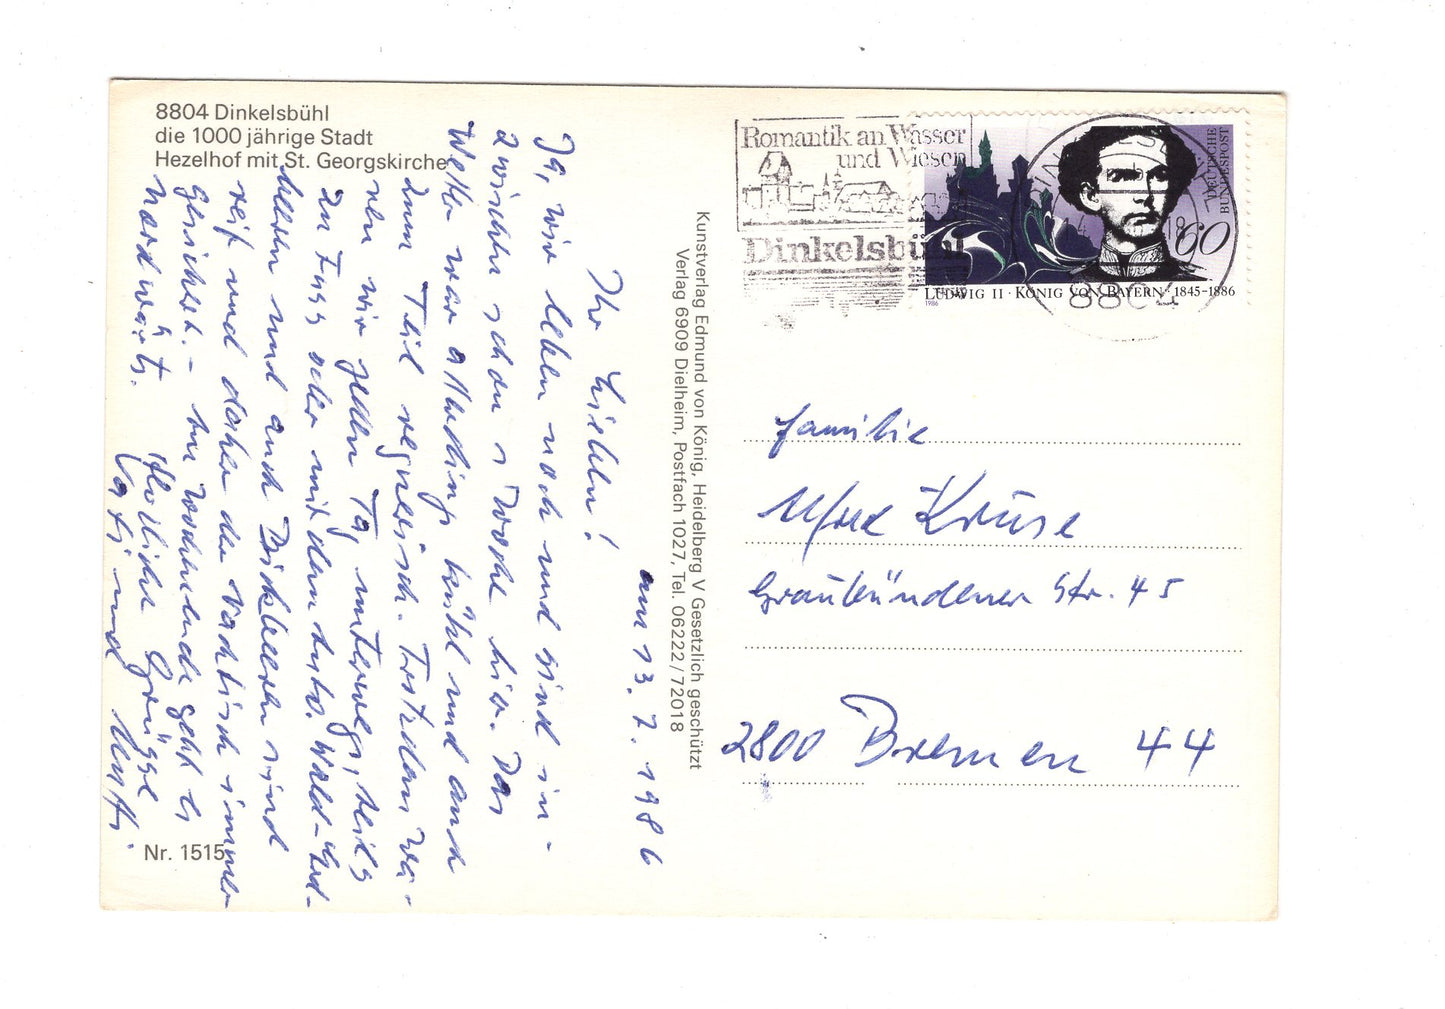 8804 Dinkelsbühl
die 1000 jährige Stadt
Hezelhof mit St. Georgskirche
am 13.7.1986
Ihr Lieben!
Ja, wir leben noch und sind in-
zwischen schon 1 Woche hier. Das
Wetter war allerdings kühl und auch
zum Teil regnerisch. Trotzdem wa-
ren wir jeden Tag unterwegs, teils
zu Fuss oder mit dem Auto. Wald-Erd-
beeren und auch Bickbeeren sind
reif und daher der Nachtisch immer
gesichert. - Am Wochenende geht es
nordwärts.
Herzliche Grüsse
und
Nr. 1515
Kunstverlag Edmund von König, Heidelberg V Gesetzlich geschützt
Verlag 6909 Dielheim, Postfach 1027, Tel. 06222/72018
Romantik an Wasser
und Wiesen
Dinkelsbühl
8804
DEUTSCHE
BUNDESPOST
60
LUDWIG II · KÖNIG VON BAYERN · 1845-1886
1986
Familie
Alfred Kruse
Graubündener Str. 45
2800 Bremen 44